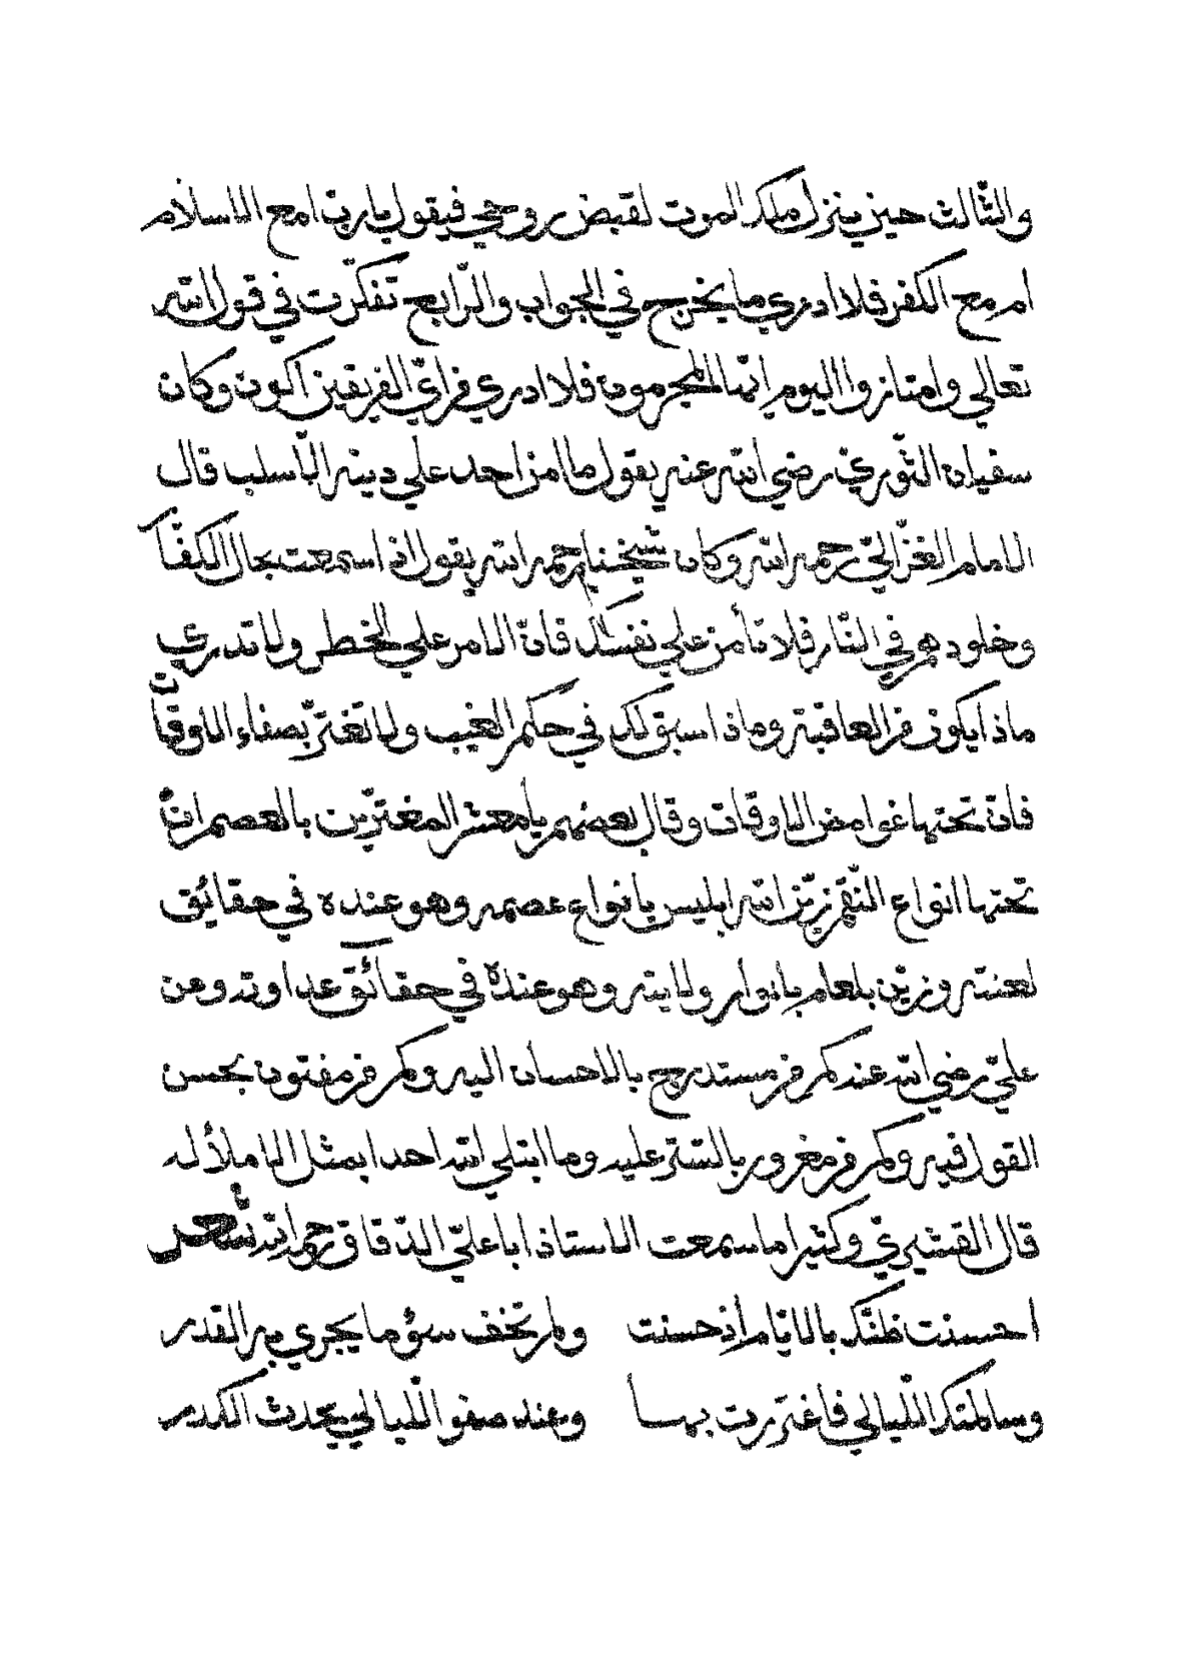 والثّالث حين ينزل ملك الموت لقبض روحي فيقول يا ربّ امع الاسلام
ام مع الكفر فلا ادري ما يخرج في الجواب والرّابع تفكّرت في قول الله
تعالي وامتازوا اليوم ايّها المجرمون فلا ادري في ايّ الفريقين اكون وكان
سفيان الثّوريّ رضي الله عنه يقول ما امن احد علي دينه الّا سلب قال
الامام الغزّاليّ رحمه الله وكان شيخنا رحمه الله يقول اذا سمعت بحال الكفّا
وخلودهم في النّار فلا تأمن علي نفسك فانّ الامر علي الخطر ولا تدري
ماذا يكون في العاقبة وماذا سبق لك في حكم الغيب ولا تغترّ بصفاء الاوقات
فانّ تحتها غوامض الاوقات وقال بعضهم يا معشر المغترّين بالعصم انّ
تحتها انواع النّقم زيّن الله ابليس بانواع عصمه وهو عنده في حقائق
لعنته وزيّن بلعام بانوار ولايته وهو عنده في حقائق عداوته وعن
عليّ رضي الله عنه كم من مستدرج بالاحسان اليه وكم من مفتون بحسن
القول فيه وكم من مغرور بالسّتر عليه وما ابتلي الله احدا بمثل الاملاء له
قال القشيريّ وكثيرا ما سمعت الاستاذ ابا عليّ الدّقاق رحمه الله شعر
احسنت ظنّك بالايّام اذ حسنت ولم تخف سؤ ما يجري به القدر
وسالمتك اللّيالي فاغتررت بها وعند صفو اللّيالي يحدث الكدر